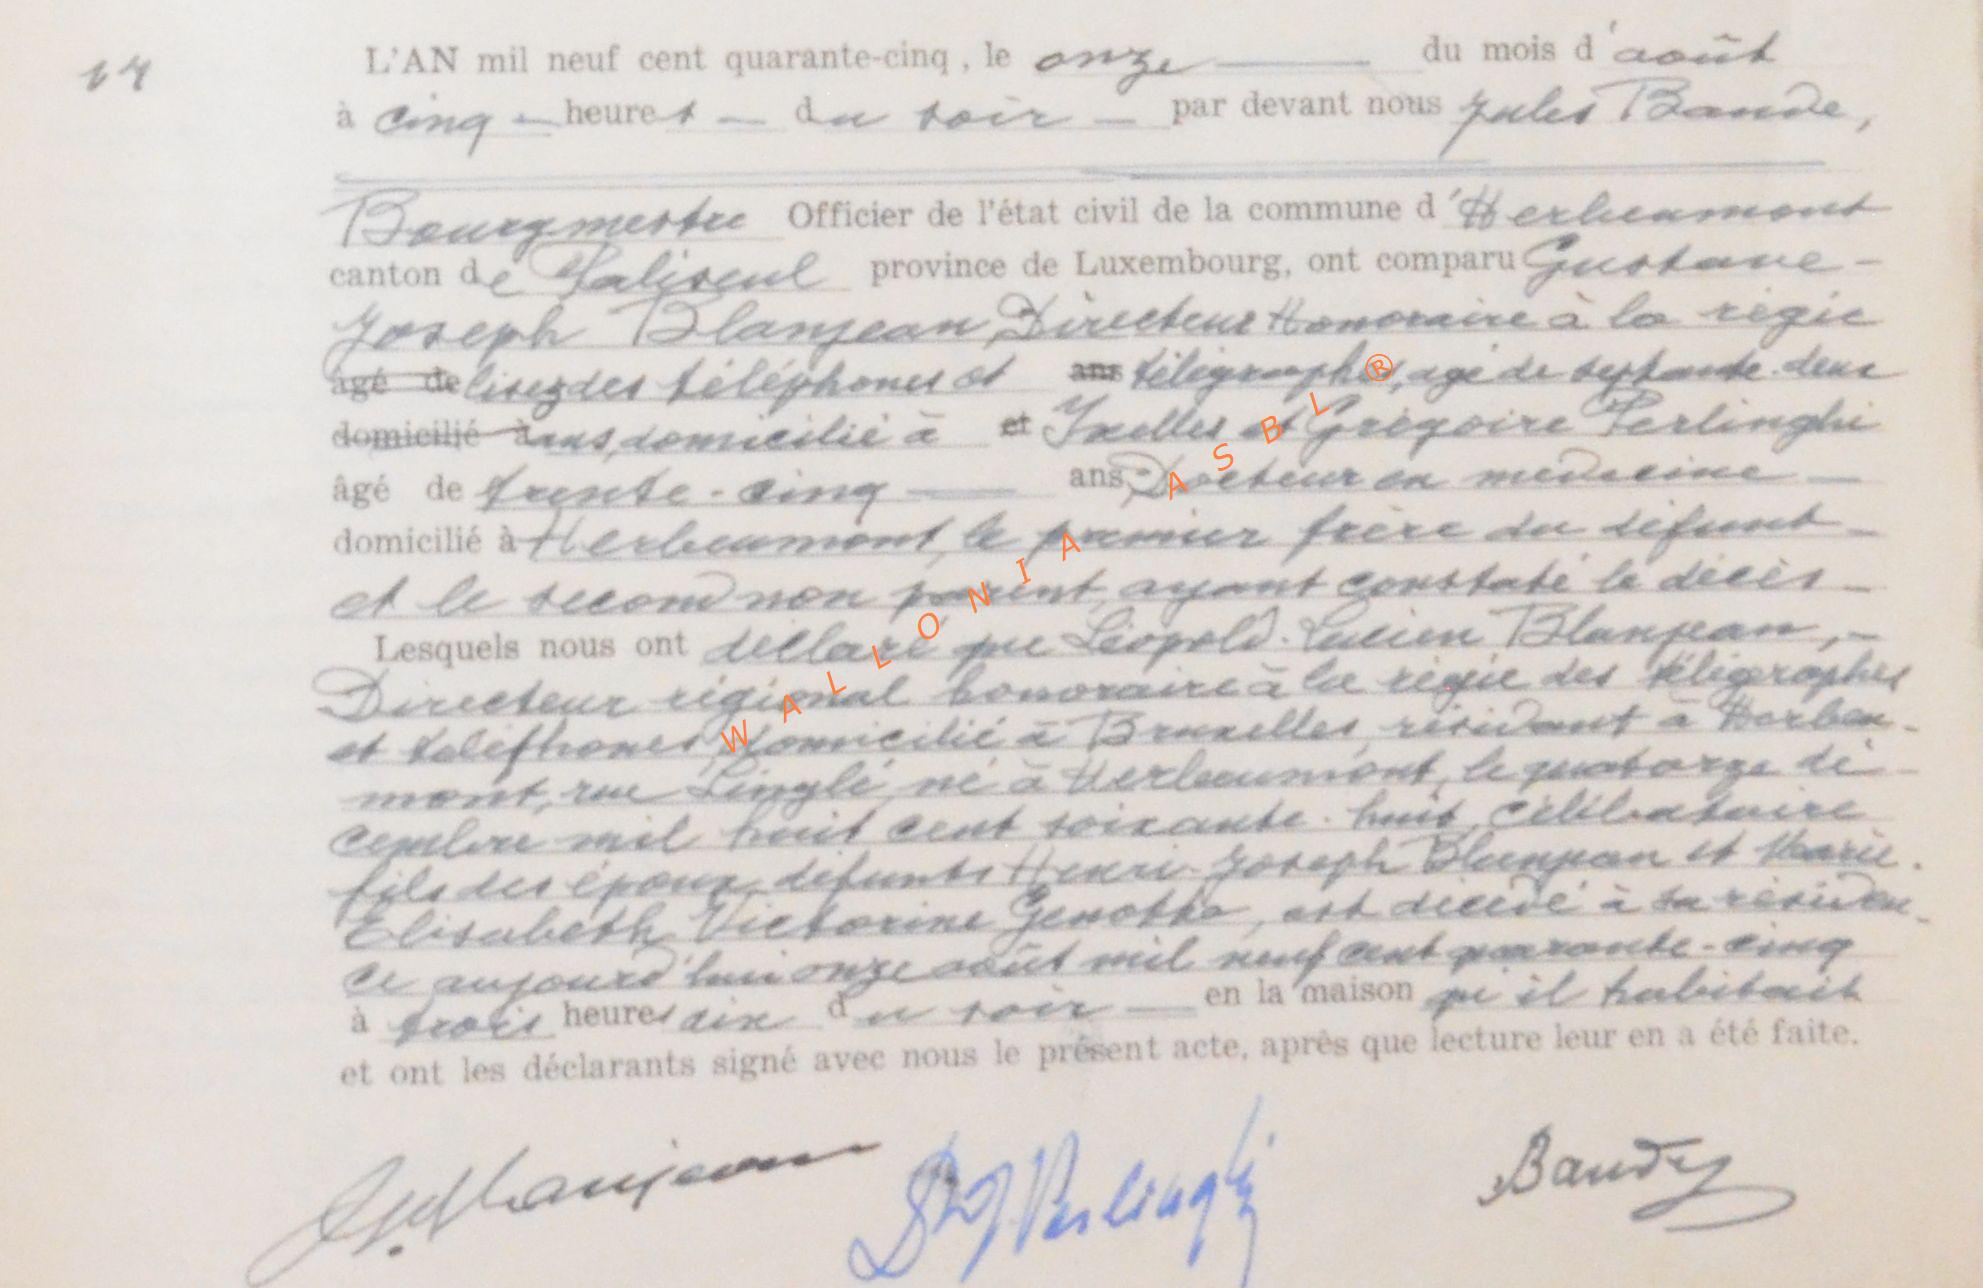 17
L'AN mil neuf cent quarante-cinq, le onze du mois d'août
à cinq heures du soir par devant nous Jules Baude,
Bourgmestre Officier de l'état civil de la commune d'Herbeumont
canton de Paliseul province de Luxembourg, ont comparu Gustave-
Joseph Blanjean, Directeur Honoraire à la régie
âgé de lisez des téléphones et ans télégraphes, agé de septante-deux
domicilié à ans, domicilié à et Ixelles et Grégoire Perlinghi
âgé de trente-cinq ans, Docteur en médecine
domicilié à Herbeumont, le premier frère du défunt
et le second non parent, ayant constaté le décès
Lesquels nous ont déclaré que Léopold-Lucien Blanjean,
Directeur régional honoraire à la régie des télégraphes
et téléphones, domicilié à Bruxelles, résidant à Herbeu-
mont, rue Linglé, né à Herbeumont, le quatorze dé-
cembre mil huit cent soixante-huit, célibataire
fils des époux défunts Henri-Joseph Blanjean et Marie-
Elisabeth Victorine Genotte, est décédé à sa résiden-
ce aujourd'hui onze août mil neuf cent quarante-cinq
à trois heures dix du soir en la maison qu'il habitait
et ont les déclarants signé avec nous le présent acte, après que lecture leur en a été faite.
Blanjean Perlinghi Baude
WALLONIA ASBL ®